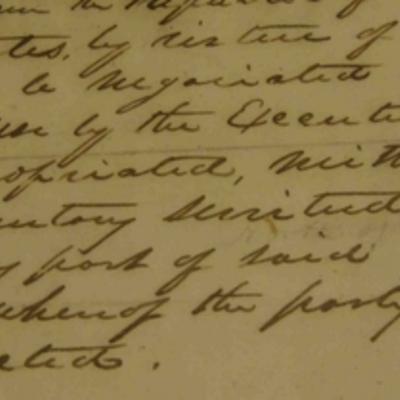 om the Republic of
tes, by virtue of
be negociated
use by the Executi
opriated, neith
untary servitud
y part of said
whereof the party
cted.